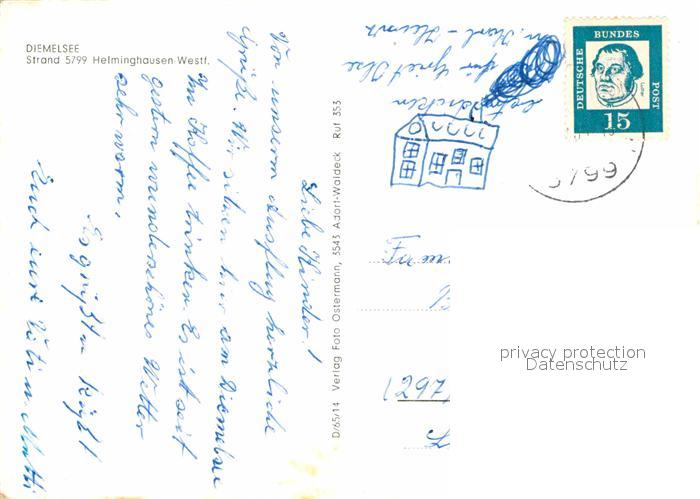 DIEMELSEE
Strand 5799 Helminghausen Westf.
Liebe Kinder!
Von unserm Ausflug herzliche
Grüße. Wir sitzen hier am Diemelsee
im Kaffee trinken. Es ist seit
gestern wunderschönes Wetter
sehr warm.
Es grüßt u. küßt
Euch eure
D/65/14 Verlag Foto Ostermann, 3543 Adorf-Waldeck Ruf 353
Karl-Heinz
für
DEUTSCHE BUNDES POST
Luther
15
5799
privacy protection
Datenschutz